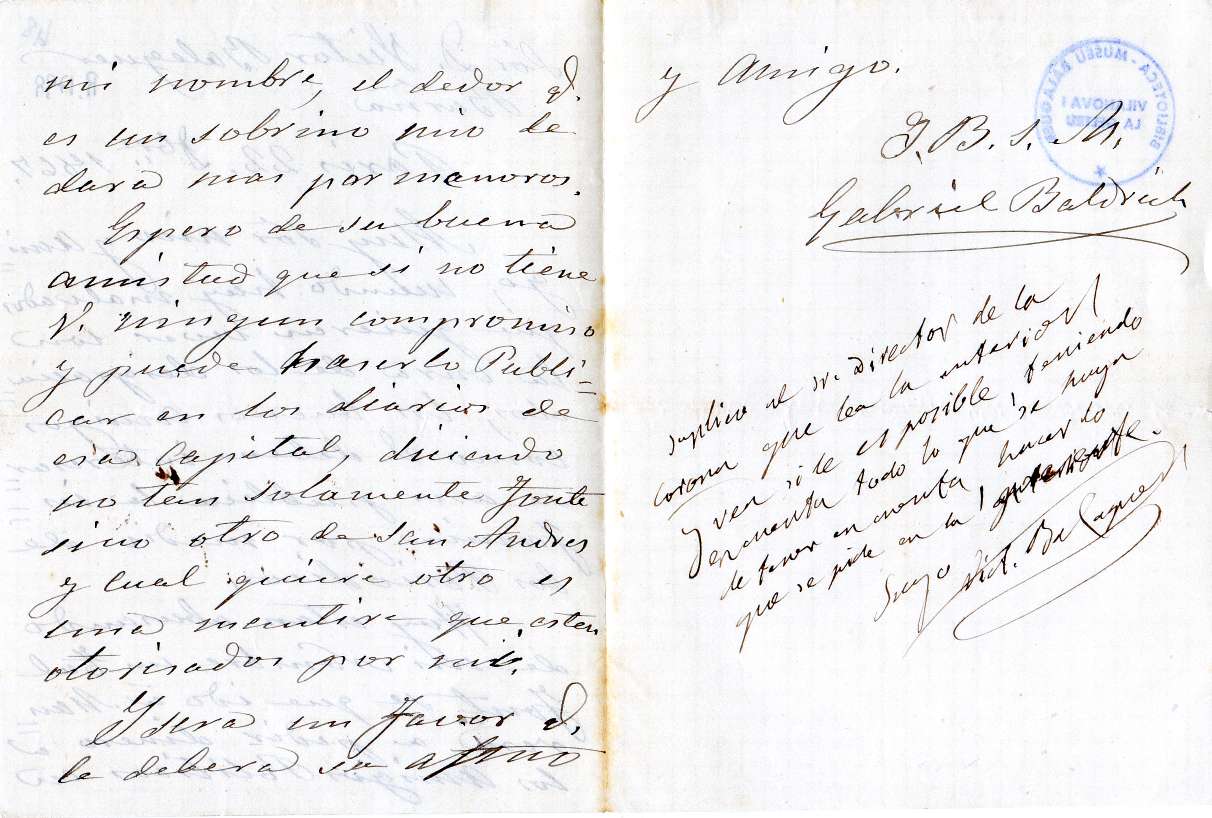 mi nombre, el dedor q.
es un sobrino mio le
dara mas pormenoros.
Espero de su buena
amistud que si no tiene
V. ningun compromiso
y puede haserlo Publi-
car en los diarios de
esa Capital, diciendo
no ten solamente Fonte
sino otro de San Andres
y cual quiere otro es
una mentira que esten
otorisados por mi.
Y sera un favor q.
le debera su afmo
y Amigo.
Q. B. S. M.
Gabriel Baldrich
suplico al sr. Director de la
Corona que lea la anterior
y vea si le es posible, teniendo
en cuenta todo lo que se haya
de tener en cuenta, hacer lo
que se pide en la presente.
Suyo Vict. Balaguer
BIBLIOTECA - MUSEU BALAGUER
VILANOVA I
LA GELTRU